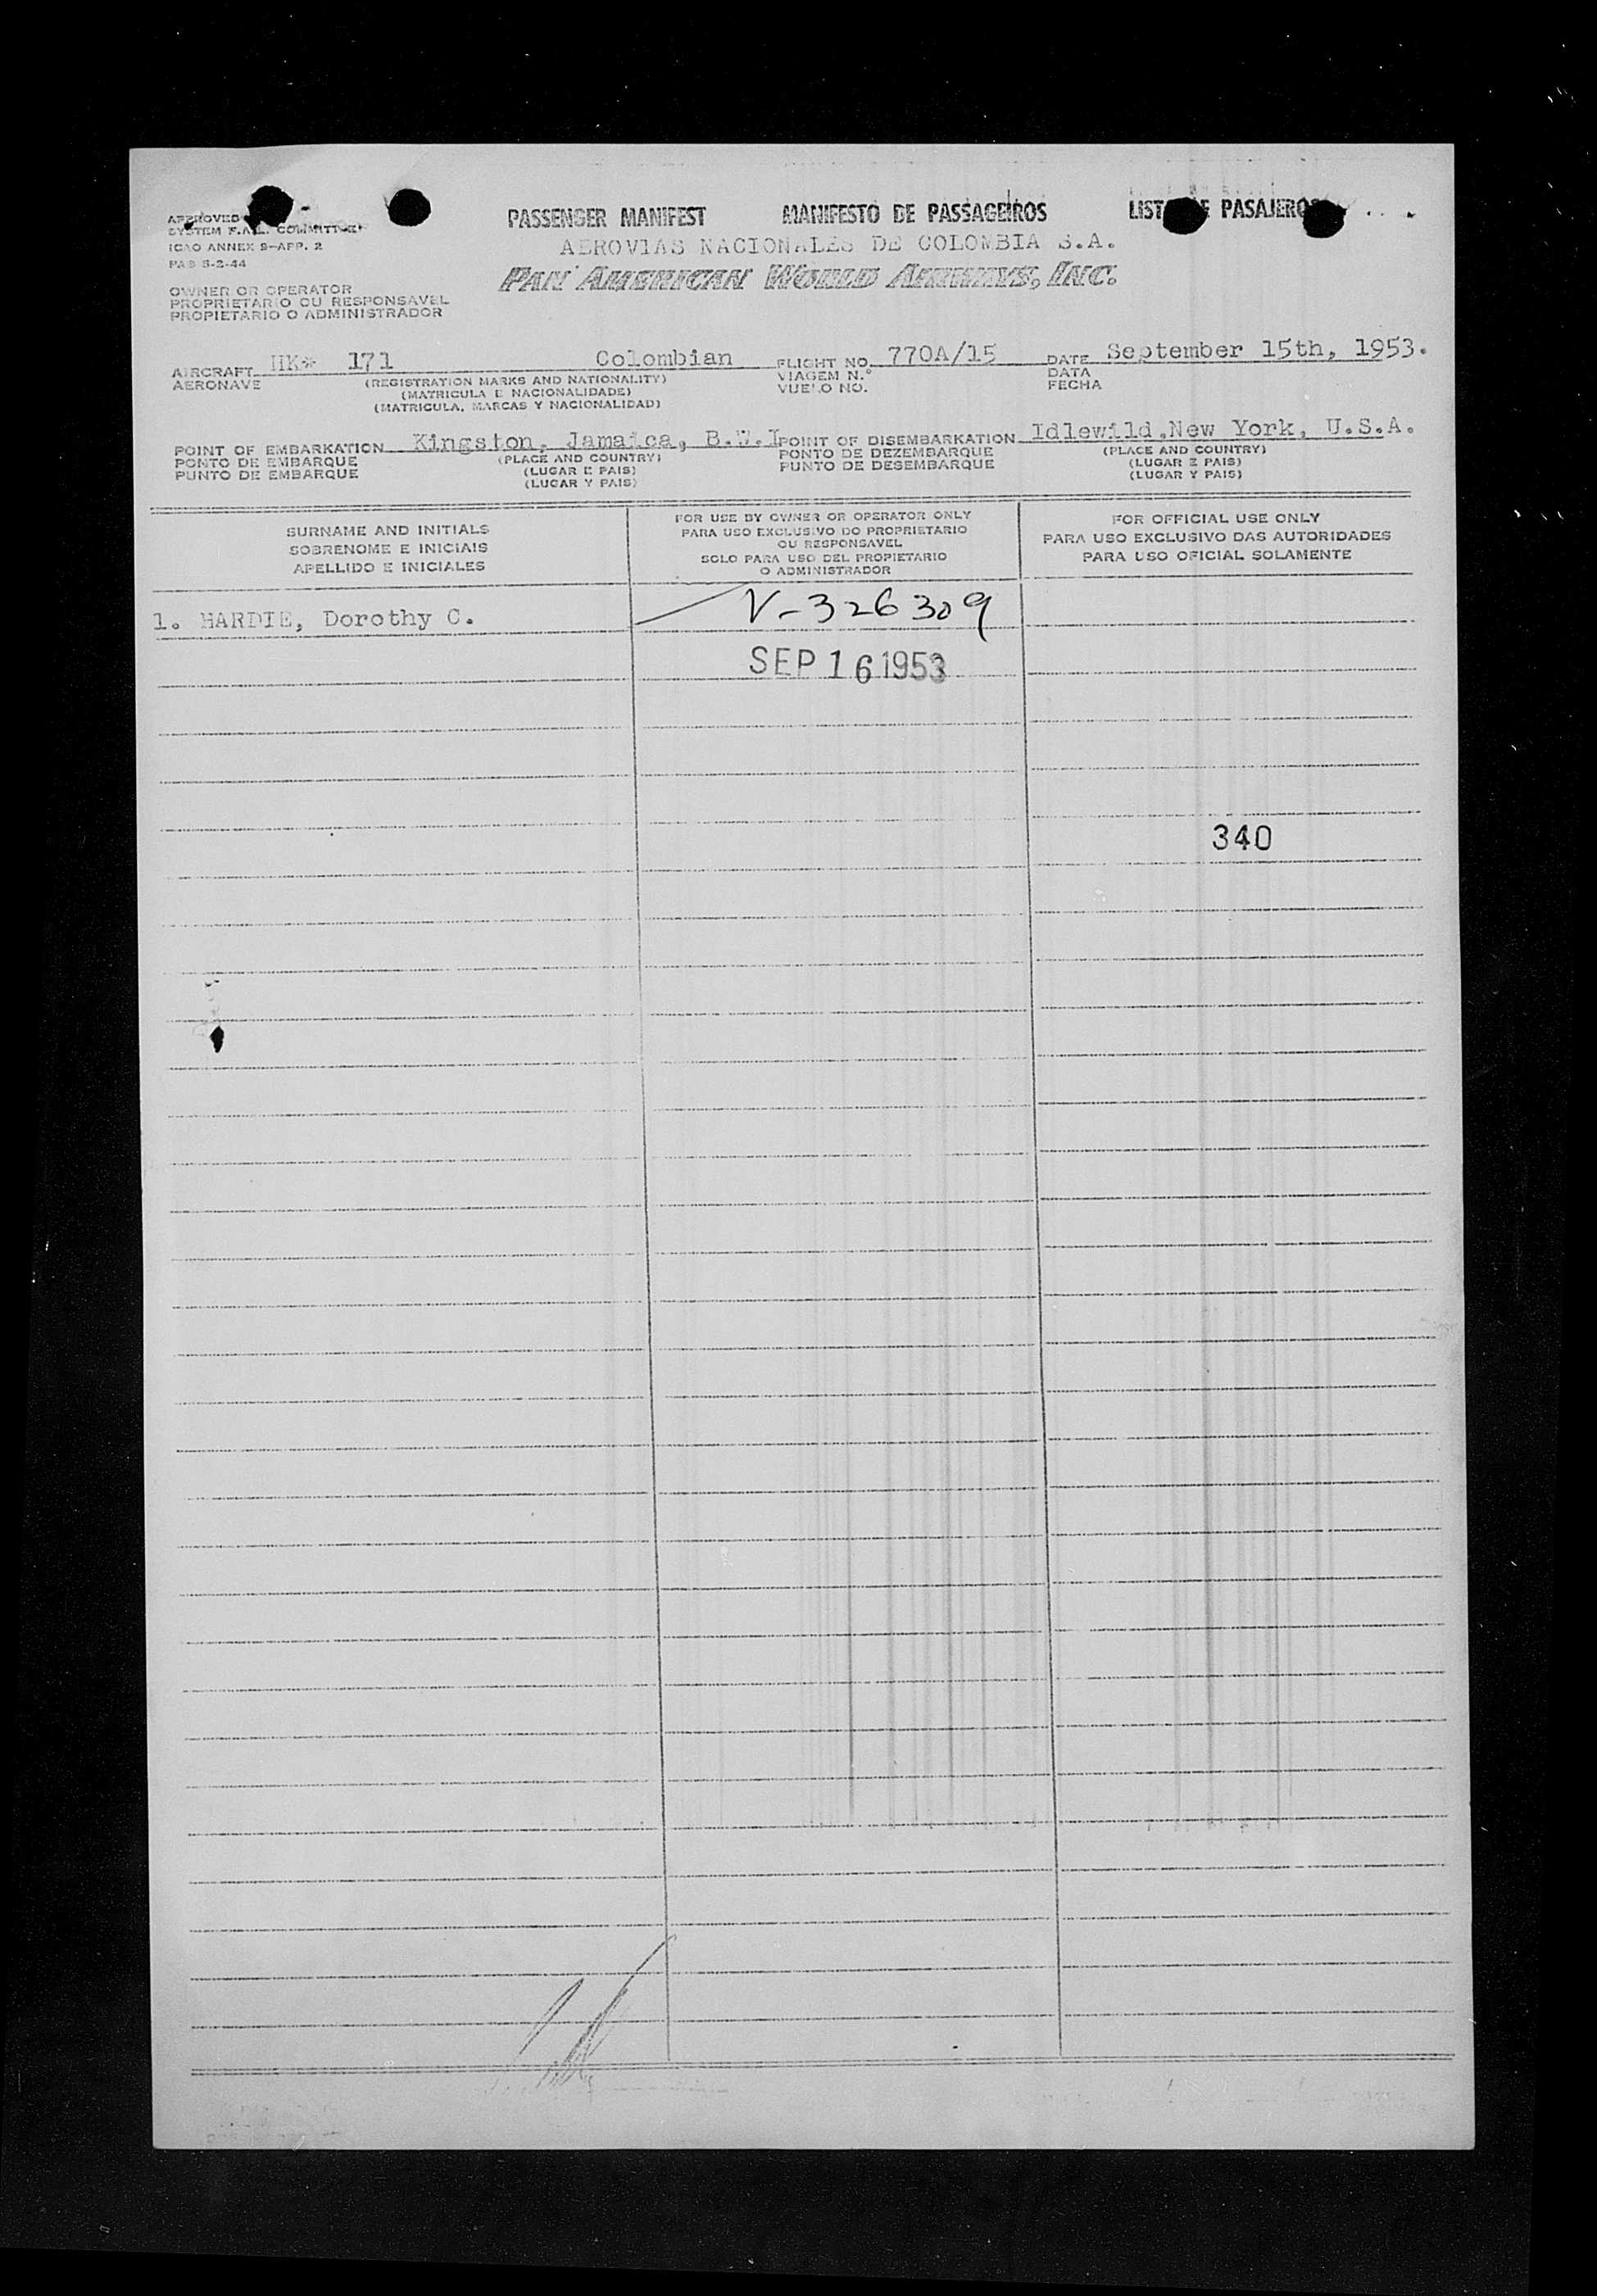 PASSENGER MANIFEST MANIFESTO DE PASSAGEIROS LISTA DE PASAJEROS
APPROVED
SYSTEM F.A.L. COMMITTEE
ICAO ANNEX 9-APP. 2
PAB 5-2-44
AEROVIAS NACIONALES DE COLOMBIA S.A.
PAN AMERICAN WORLD AIRWAYS, INC.
OWNER OR OPERATOR
PROPRIETARIO OU RESPONSAVEL
PROPIETARIO O ADMINISTRADOR
AIRCRAFT HK* 171 Colombian FLIGHT NO. 770A/15 DATE September 15th, 1953.
AERONAVE (REGISTRATION MARKS AND NATIONALITY) VIAGEM N.° DATA
(MATRICULA E NACIONALIDADE) VUELO NO. FECHA
(MATRICULA, MARCAS Y NACIONALIDAD)
POINT OF EMBARKATION Kingston, Jamaica, B.W.I POINT OF DISEMBARKATION Idlewild,New York, U.S.A.
PONTO DE EMBARQUE (PLACE AND COUNTRY) PONTO DE DEZEMBARQUE (PLACE AND COUNTRY)
PUNTO DE EMBARQUE (LUGAR E PAIS) PUNTO DE DESEMBARQUE (LUGAR E PAIS)
(LUGAR Y PAIS) (LUGAR Y PAIS)
SURNAME AND INITIALS
SOBRENOME E INICIAIS
APELLIDO E INICIALES
FOR USE BY OWNER OR OPERATOR ONLY
PARA USO EXCLUSIVO DO PROPRIETARIO
OU RESPONSAVEL
SOLO PARA USO DEL PROPIETARIO
O ADMINISTRADOR
FOR OFFICIAL USE ONLY
PARA USO EXCLUSIVO DAS AUTORIDADES
PARA USO OFICIAL SOLAMENTE
1. HARDIE, Dorothy C. V-326309
SEP 16 1953
340